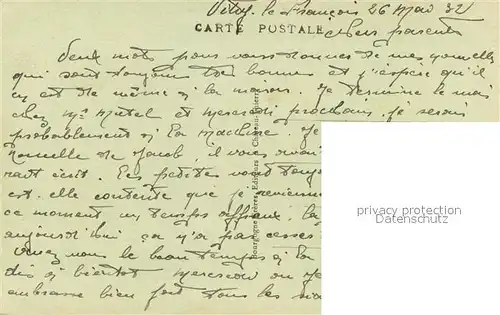 Vitry le François 26 Mai 32
CARTE POSTALE
chers parents
Deux mots pour vous donner de mes nouvelles
qui sont toujours bonnes et j'espère qu'il
en est de même à la maison. Je termine le mois
chez Mr et mercredi prochain je serais
probablement à la machine. Je
nouvelle de il vous
écrit. Les petites vont
est-elle contente que je
ce moment un temps affreux.
aujourd'hui ça n'a pas cessé
nous le beau temps à la
dis à bientôt mercredi ou
embrasse bien fort tous les
Bourgogne Frères, Editeurs, Chateau-Thierry
privacy protection
Datenschutz